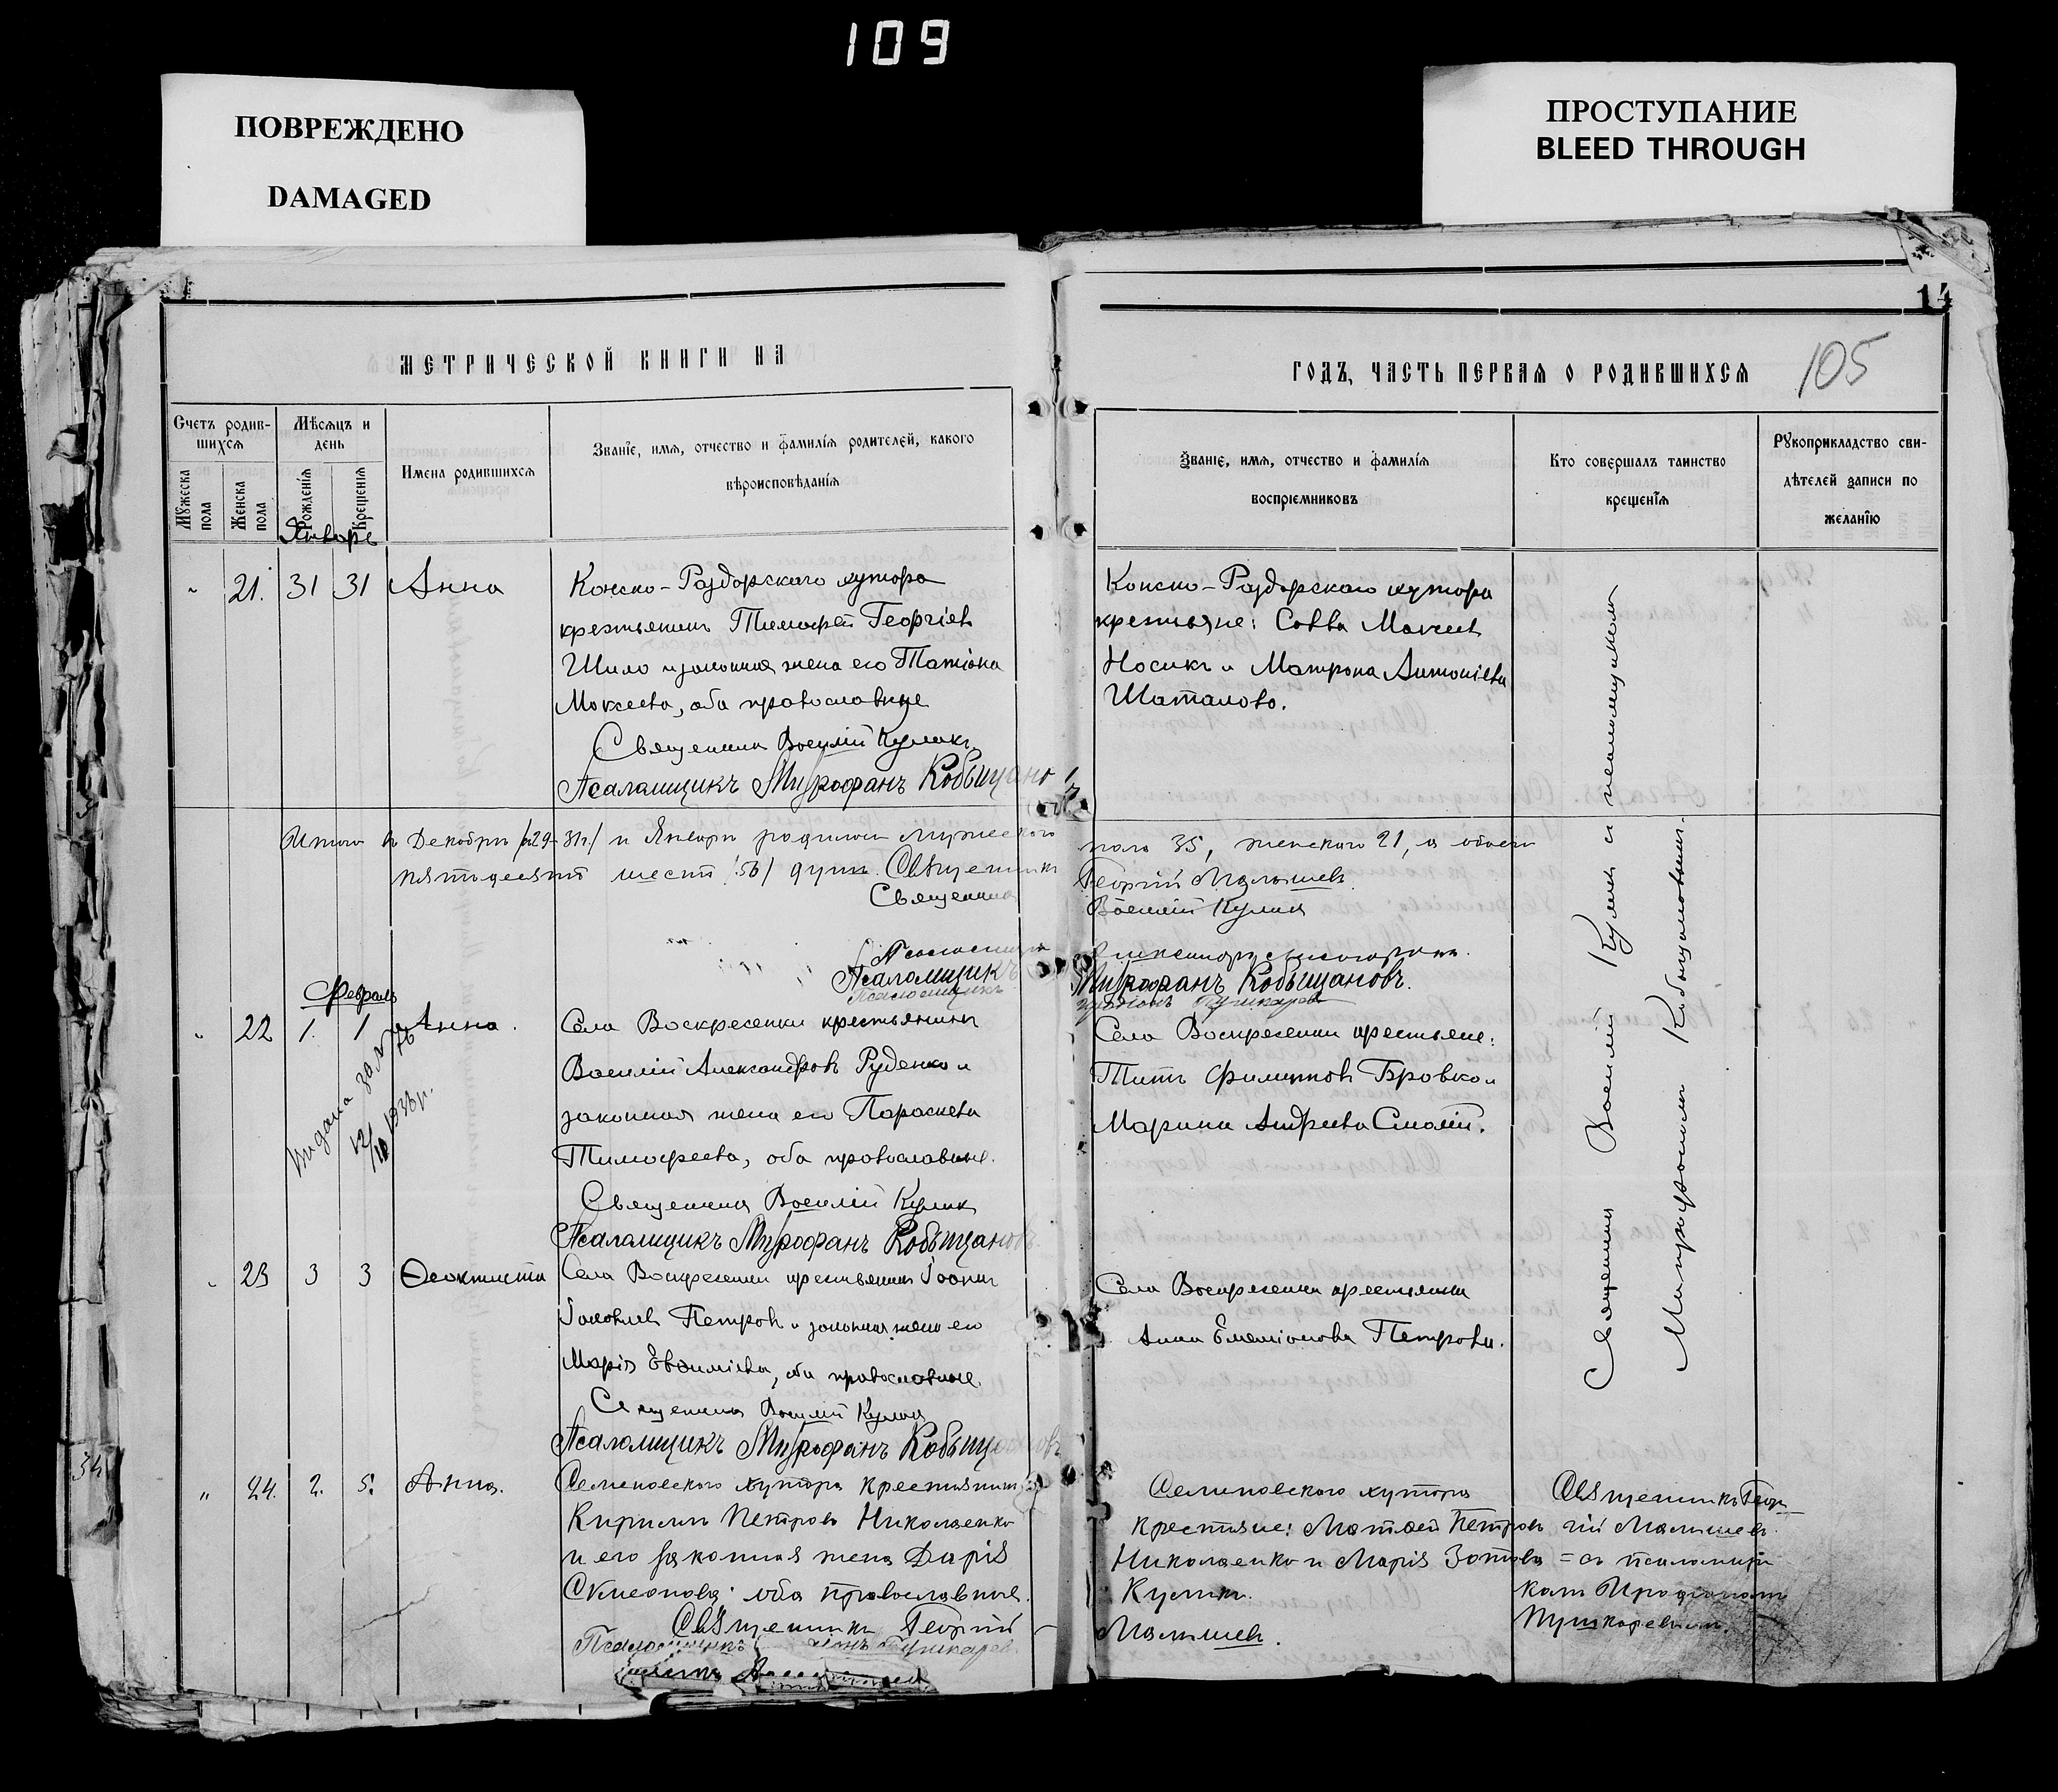 109
ПОВРЕЖДЕНО
DAMAGED
ПРОСТУПАНИЕ
BLEED THROUGH
14
МЕТРИЧЕСКОЙ КНИГИ НА
ГОДЪ, ЧАСТЬ ПЕРВАЯ О РОДИВШИХСЯ
105
Счетъ родив-
шихся
Мужеска пола
Женска пола
Мѣсяцъ и
день
Рожденія
Крещенія
Имена родившихся
Званіе, имя, отчество и фамилія родителей, какого
вѣроисповѣданія
Званіе, имя, отчество и фамилія
воспріемниковъ
Кто совершалъ таинство
крещенія
Рукоприкладство сви-
дѣтелей записи по
желанію
Январь
" 21. 31 31 Анна
Конско-Раздорскаго хутора
крестьянинъ Тимофей Георгіевъ
Шило и законная жена его Татіана
Моксеева, оба православные
Священникъ Василій Куликъ
Псаломщикъ Митрофанъ Кобыщановъ
Конско-Раздорскаго хутора
крестьяне: Савва Моксеевъ
Носикъ и Матрона Антоніева
Шаталова.
Священникъ Василій Куликъ и псаломщикомъ
Митрофаномъ Кобыщановымъ.
Итого въ Декабрѣ /29-31г./ и Январѣ родилось мужескаго пола 35, женскаго 21, а обоего
пятьдесятъ шесть /56/ душъ. Священникъ Георгій Малышевъ.
Священникъ Василій Куликъ
Псаломщикъ
Псаломщикъ Митрофанъ Кобыщановъ.
Псаломщикъ Пушкаревъ
Февраль
" 22 1. 1 Анна.
Видана
12/10 1933 р.
Села Воскресенки крестьянинъ
Василій Александровъ Руденко и
законная жена его Параскева
Тимофеева, оба православные.
Священникъ Василій Куликъ
Псаломщикъ Митрофанъ Кобыщановъ
Села Воскресенки крестьяне:
Титъ Филиповъ Бровко и
Марина Андреева Смолій.
" 23 3 3 Ѳеоктиста
Села Воскресенки крестьянинъ Іоаннъ
Іаковлевъ Петровъ и законная жена его
Марія Евѳиміева, оба православные.
Священникъ Василій Куликъ
Псаломщикъ Митрофанъ Кобыщановъ
Села Воскресенки крестьянка
Анна Емеліонова Петрова.
" 24. 2. 5. Анна.
Семеновского хутора крестьянинъ
Кириллъ Петровъ Николаенко
и его законная жена Дарія
Симеонова: оба православные.
Священникъ Георгій Малышев.
Псаломщикъ Пушкарев
Семеновского хутора
крестьяне: Матѳей Петровъ
Николаенко и Марія Зотова
Куликъ.
Священникъ Геор-
гій Малышевъ
= съ псаломщи
комъ Иродіономъ
Пушкаревымъ.
34